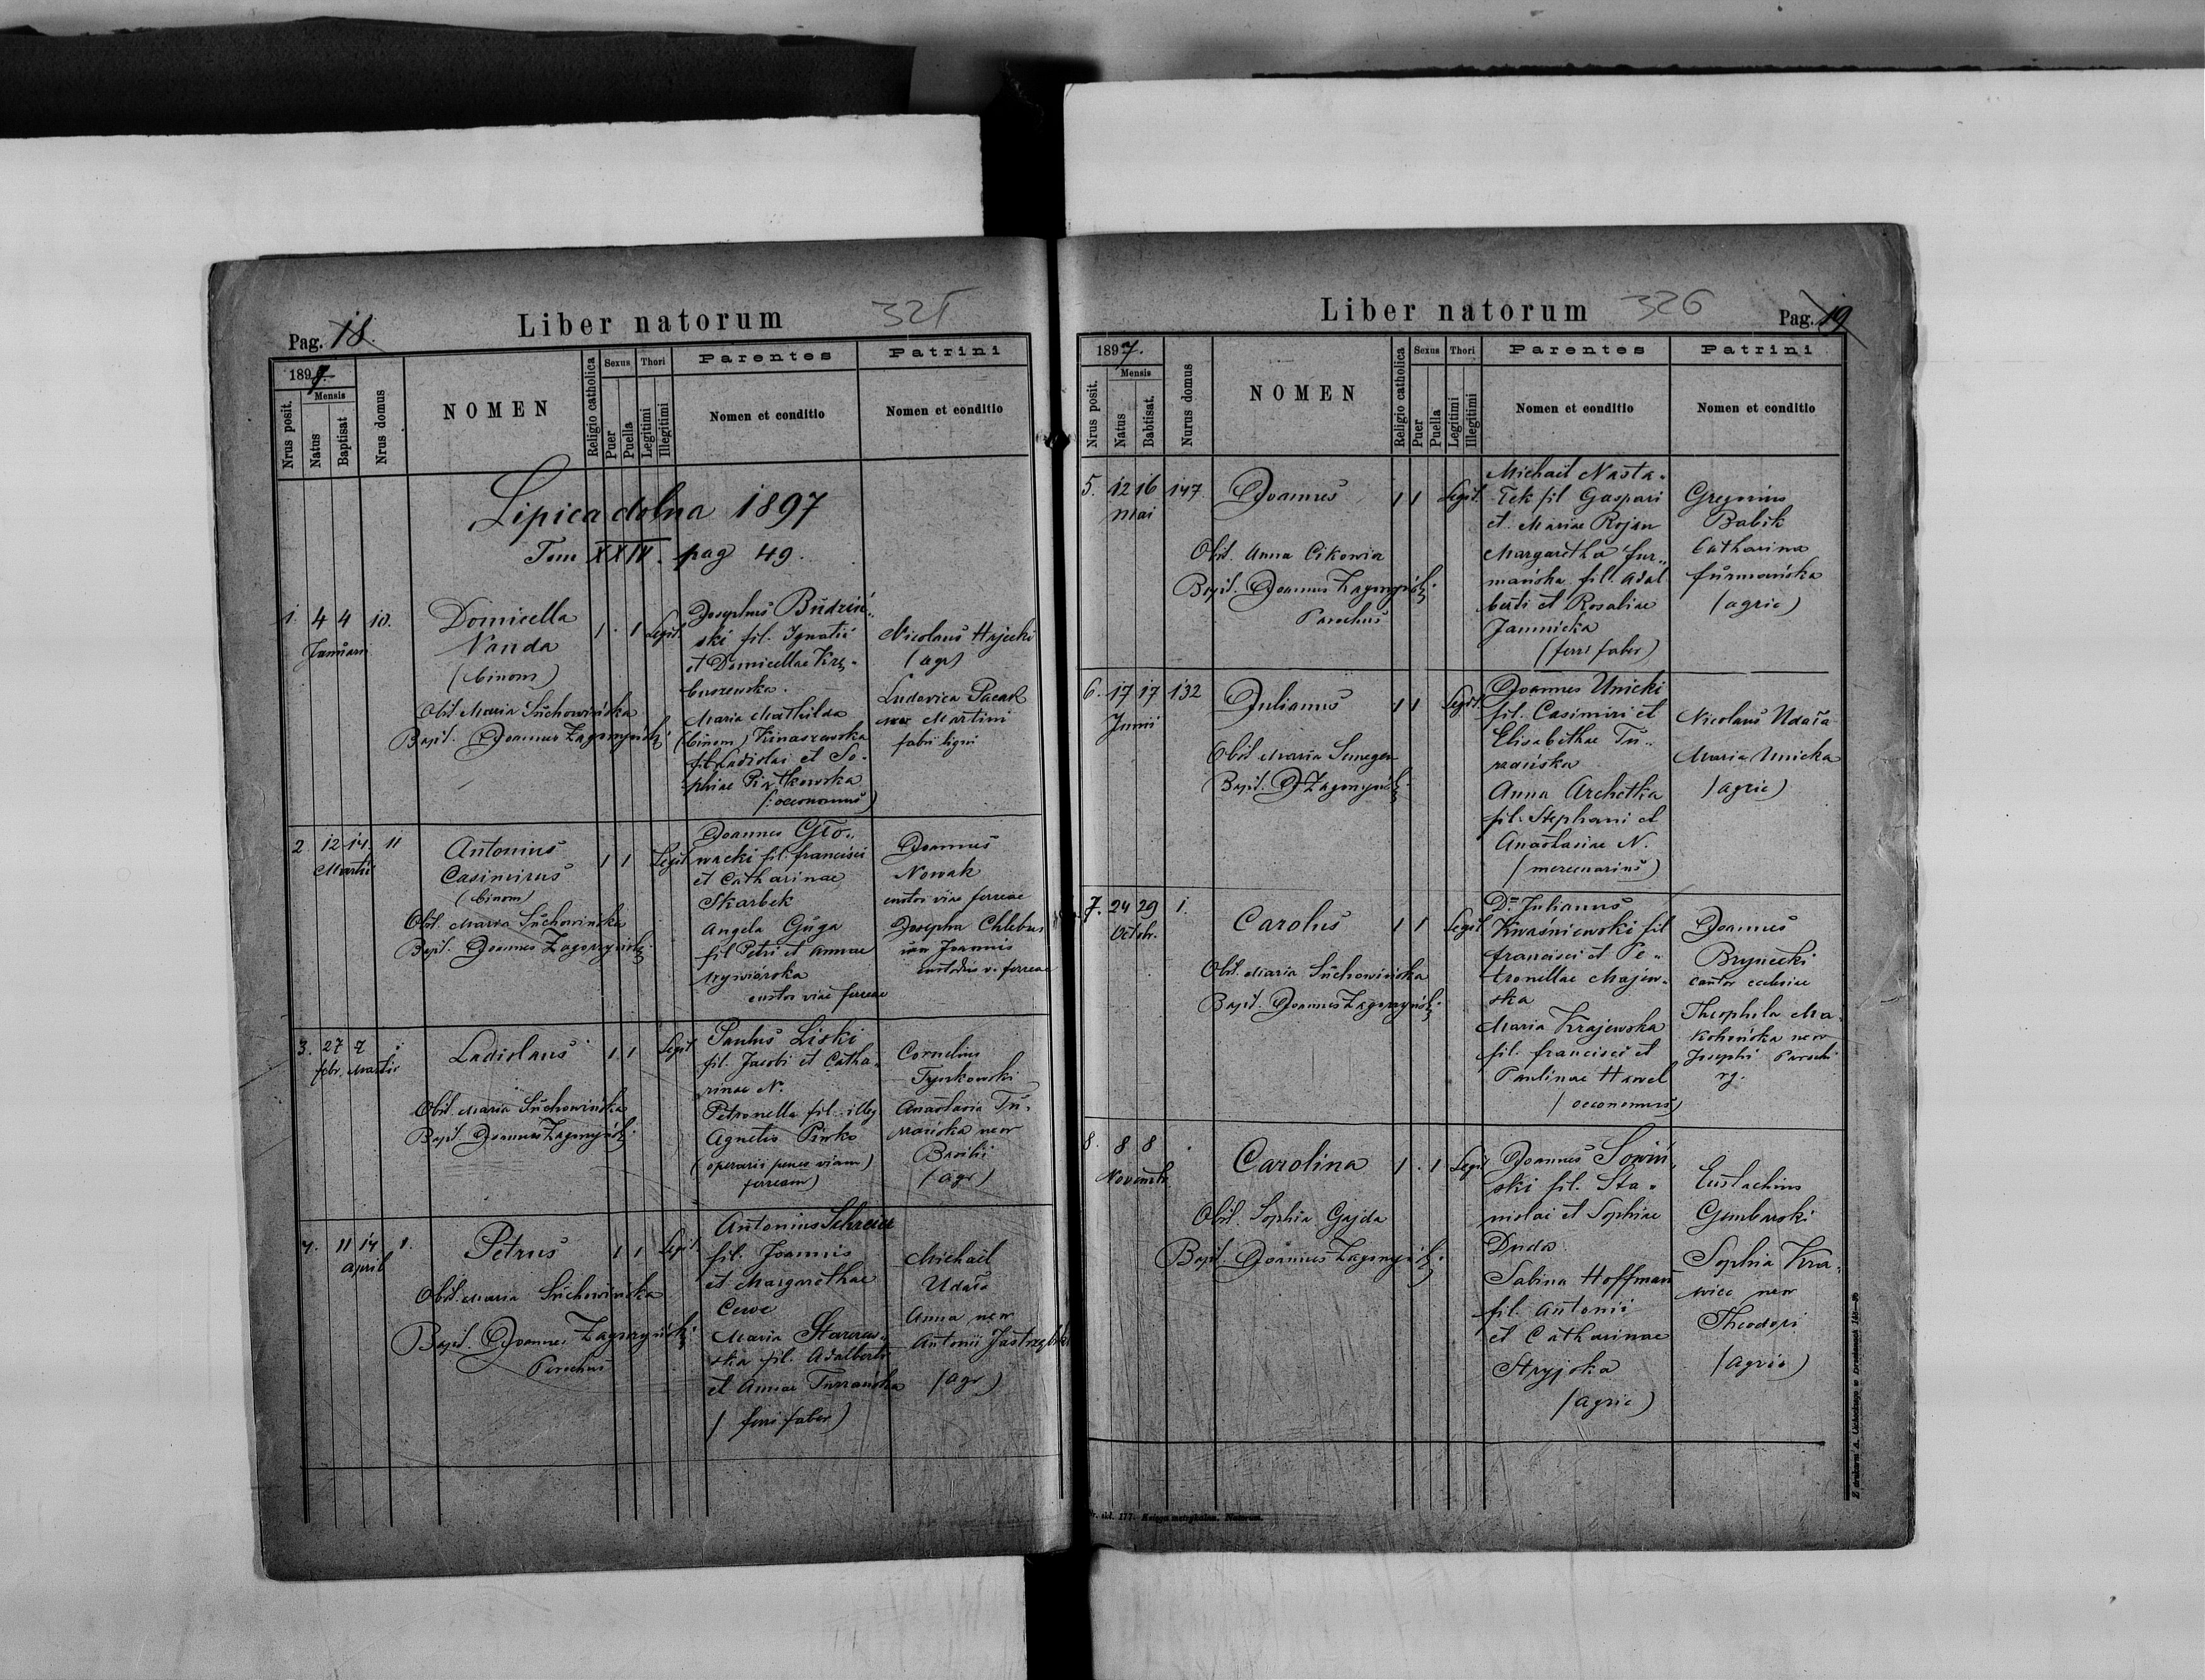 Pag. 18.
Liber natorum
325
1897.
Nrus posit.
Mensis
Natus
Baptisat
Nrus domus
NOMEN
Religio catholica
Sexus
Puer
Puella
Thori
Legitimi
Illegitimi
Parentes
Nomen et conditio
Patrini
Nomen et conditio
Lipica dolna 1897
Tom XXIX. pag 49.
1. 4 4 10.
Januarii
Domicella
Vanda
(binom)
1 . 1 Legit.
Obst. Maria Suchowińska
Bapt. Joannes Zagorzyński
Josephus Budziń-
ski fil. Ignatii
et Domicellae
Maria Mathilda
(binom) Kinaszewska
fil. Ladislai et So-
phiae Piątkowska
(oeconomus)
Nicolaus Hajecki
(agr)
Ludovica
uxor Martini
fabri ligni
2 12 14. 11
Martii
Antonius
Casimirus
(binom)
1 1 Legit
Obst. Maria Suchowińska
Bapt. Joannes Zagorzyński
Joannes Gło-
wacki fil. francisci
et Catharinae
Skarbek
Angela Guga
fil Petri et Annae
custos viae ferreae
Joannes
Nowak
custos viae ferreae
Josepha Chlebus
uxor Joannis
custodis v. ferreae
3. 27 7
febr. Martii
Ladislaus
1. 1 Legit
Obst. Maria Suchowińska
Bapt. Joannes Zagorzyński
Paulus Liski
fil. Jacobi et Catha-
rinae N.
Petronella fil. illeg
Agnetis Pirko
(operarii penes viam
ferream)
Cornelius
Tyrkowski
Anastasia Tu-
rzańska uxor
Basilii
(agr)
4. 11 14 1.
April
Petrus
1 1 Legit.
Obst. Maria Suchowińska
Bapt. Joannes Zagorzyński
Parochus
Antonius Schreier
fil. Joannis
et Margarethae
Cewe
Maria
ska fil. Adalberti
et Annae Turzańska
(ferri faber)
Michael
Udała
Anna uxor
Antonii Jastrzębski
(agr)
Liber natorum
326
Pag. 19
1897.
Nrus posit.
Mensis
Natus
Babtisat.
Nurus domus
NOMEN
Religio catholica
Sexus
Puer
Puella
Thori
Legitimi
Illegitimi
Parentes
Nomen et conditio
Patrini
Nomen et conditio
5. 12 16 147
Mai
Joannes
1 1 Legit.
Obst. Anna Cikowia
Bapt. Joannes Zagorzyński
Parochus
Michaël Nasta-
Tek fil Gaspari
et Mariae Rojan
Margaretha fur-
mańska fil. Adal
berti et Rosaliae
Jamnicka
(ferri faber)
Gregorius
Babik
Catharina
furmańska
(agric)
6. 17 17 132
Junii
Julianus
1 1 Legit.
Obst Maria
Bapt. J Zagorzyński
Joannes Unicki
fil. Casimiri et
Elisabethae Tu-
rzańska
Anna Archetka
fil. Stephani et
Anastasiae N.
(mercenarius)
Nicolaus Udała
Maria Unicka
(agric)
7. 24 29 1.
Octobr.
Carolus
1 1 Legit
Obst. Maria Suchowińska
Bapt. Joannes Zagorzyński
Dnus Julianus
Kwaśniewski fil
francisci et Pe-
tronellae Majew-
ska
Maria Krajewska
fil. francisci et
Paulinae Hawel
(oeconomus)
Joannes
Brynecki
cantor ecclesiae
Theophila Ma-
uxor
Josephi Parochi
8. 8 8 .
Novembr.
Carolina
1 . 1 Legit
Obst. Sophia Gajda
Bapt. Joannes Zagorzyński
Joannes Sowiń-
ski fil. Sta-
nislai et Sophiae
Duda
Sabina Hoffman
fil. Antonii
et Catharinae
Stryjska
(agric)
Eustachius
Gembarski
Sophia Kra-
wiec uxor
Theodori
(agric)
177. Księga metrykalna. Natorum.